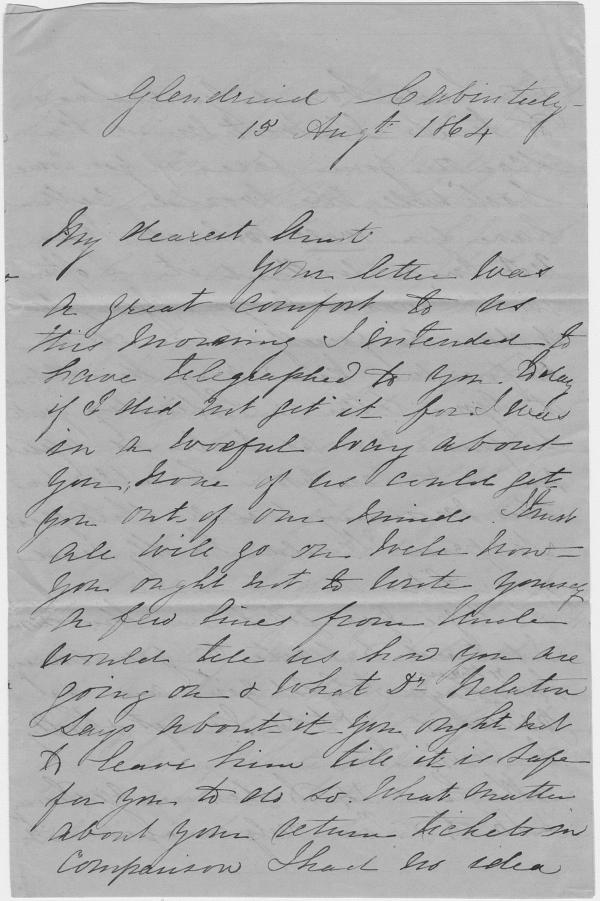 Glendruid Cabinteely
15 Augt 1864
My dearest Aunt
Your letter was
a great comfort to us
this morning I intended to
have telegraphed to you today
if I did not get it for I was
in a woeful way about
you, none of us could get
you out of our minds. I trust
all will go on well now—
you ought not to write yourself
a few lines from Uncle
would tell us how you are
going on & what Dr Nelaton
says about it you ought not
to leave him till it is safe
for you to do so. What matter
about your return tickets in
comparison I had no idea